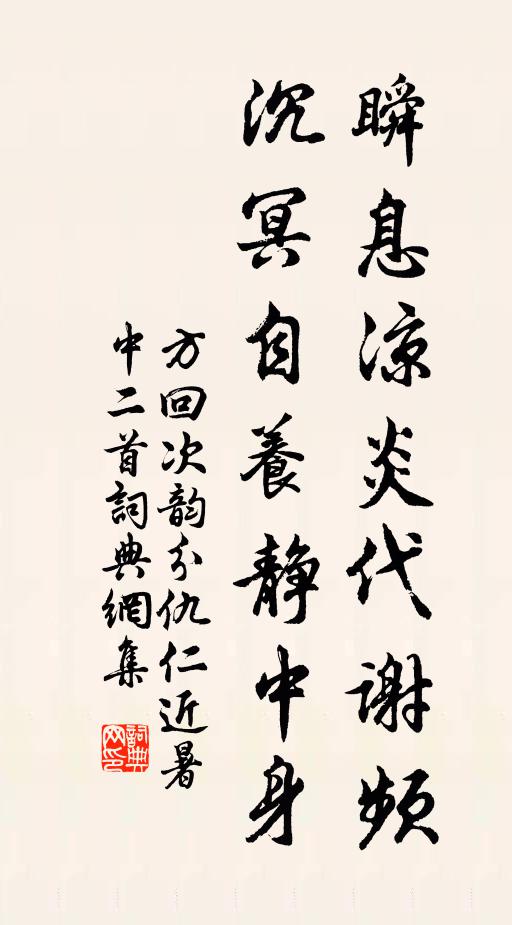 瞬息凉炎代谢頻
沉冥自養静中身
方回次韵分仇仁近暑
中二首詞典網集
詞典
网印